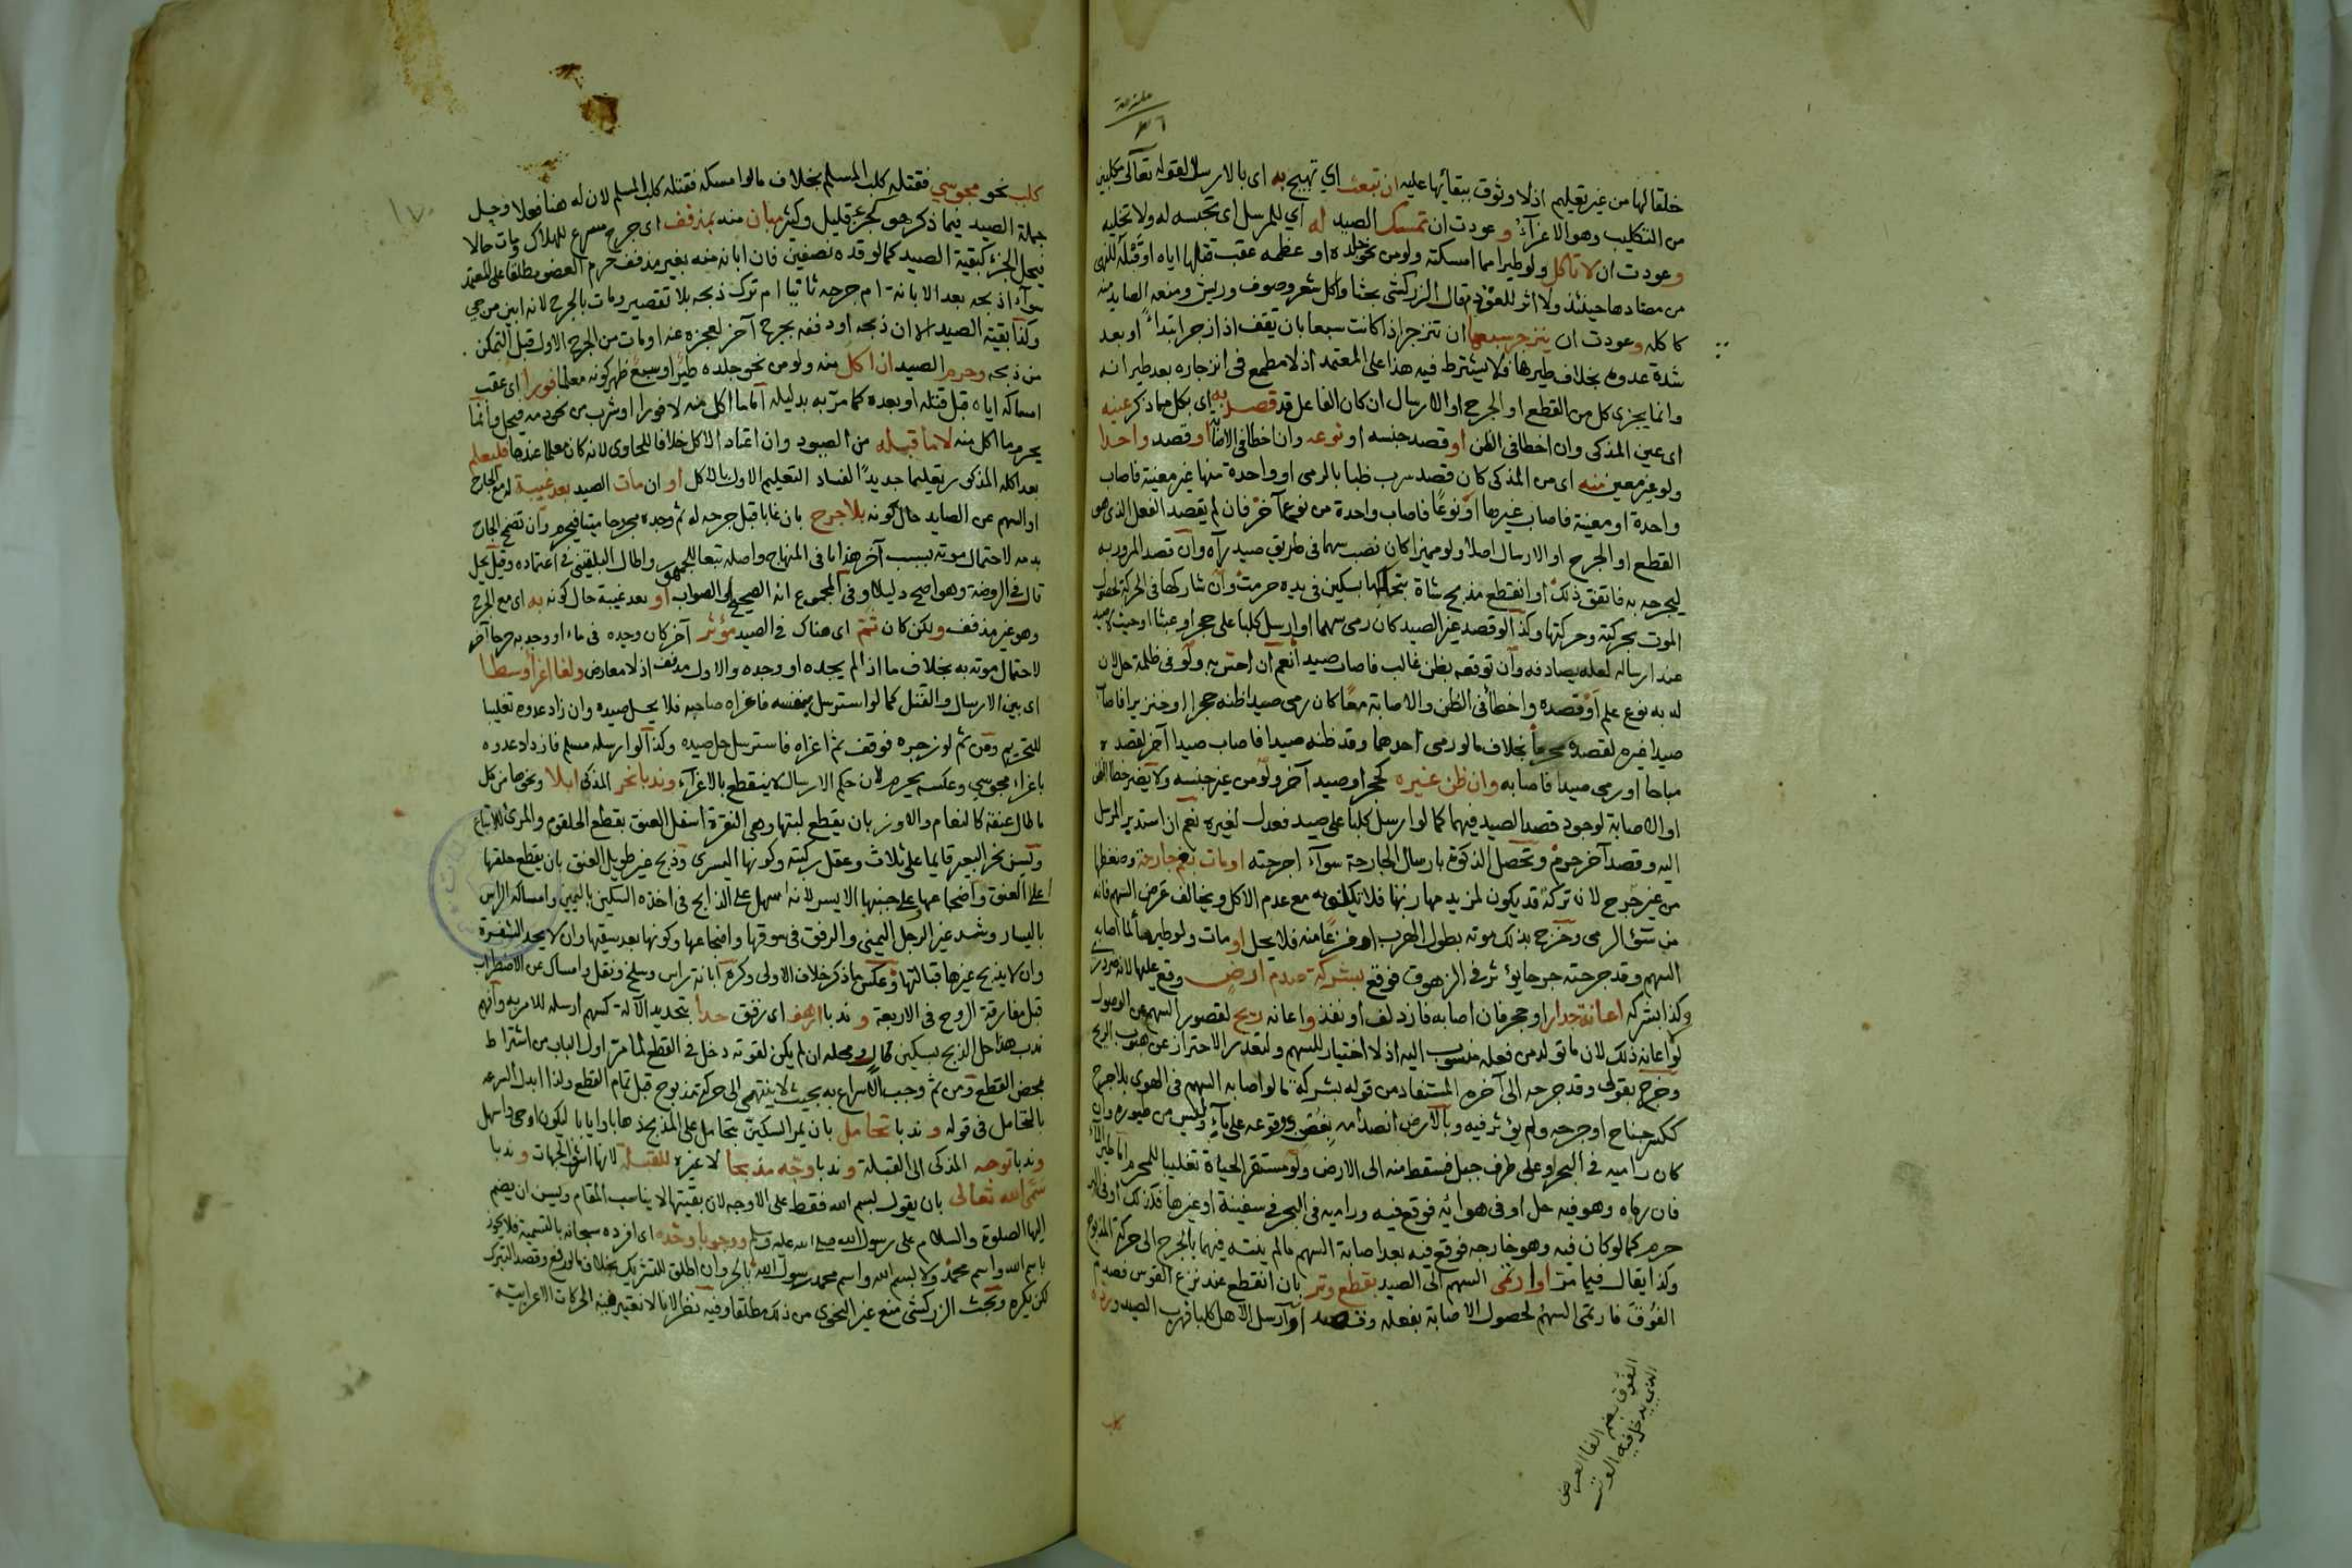 خلقا لها من غير تعليم اذ لا وثوق ببقائها عليه ان تبعث اي تهيج به اى بالارسال لقوله تعالى مكلبين
من التكليب وهو الاغراء وعودت ان تمسك الصيد له اي للمرسل اى تحبسه له ولا تخليه
وعودت ان لا تاكل ولو طيرا مما امسكته ولو من نحو جلده او عظمه عقب قتلها اياه او قتله للنهى
من معتادها حينئذ ولا اثر للعق دم قال الزركشى بحثا واكل شعر وصوف وريش ومنعه الصايد منه
كاكله وعودت ان ينزجر سبعها ان تنزجر اذا كانت سبعا بان يقف اذ ازجر ابتداء او بعد
شدة عدوه بخلاف طيرها فلا يشترط فيه هذا على المعتمد اذ لا مطمع فى انزجاره بعد طيرانه
وانما يجزى كل من القطع او الجرح او الارسال ان كان الفاعل قد قصد به اى بكل مما ذكر عينه
اى عين المذكى وان اخطا فى الظن او قصد جنسه او نوعه وان اخطا فى الاصابة او قصد واحدا
ولو غير معين منه اى من المذكى كان قصد سرب ظبا بالرمى او واحدة منها غير معينة فاصاب
واحدة او معينة فاصاب غيرها او نوعا فاصاب واحدة من نوع آخر فان لم يقصد الفعل الذى هو
القطع او الجرح او الارسال اصلا ولو مميزا كان نصب سهما فى طريق صيد رآه وان قصد المرور به
ليجرحه به فاتفق ذلك او انقطع مذبح شاة بتحاكها بسكين فى يده حرمت وان شاركها فى الحركة لحصول
الموت بحركته وحركتها وكذا لو قصد غير الصيد كان رمى سهما او ارسل كلبا على حجر او عبثا او حيث لا صيد
عند ارساله لعله يصادفه وان توقعه بظن غالب فاصاب صيدا نعم ان احتر به ولو فى ظلمة حل لان
له به نوع علم او قصده واخطا فى الظن والاصابة معا كان رمى صيدا ظنه حجرا او خنزيرا فاصاب
صيدا غيره لقصده محرما بخلاف ما لو رمى احدهما وقد ظنه صيدا فاصاب صيدا آخر لقصده
مباحا او رمى صيدا فاصابه وان ظن غيره كحجر او صيد آخر ولو من غير جنسه ولا يضر خطا الظن
او الاصابة لوجود قصد الصيد فيهما كما لو ارسل كلبا على صيد فعدل لغيره نعم ان استدبر المرسل
اليه وقصد آخر حرم وتحصل الذكوة بارسال الجارحة سوآء اجرحته او مات بغم جارحة وضغطها
من غير جرح لان تركه قد يكون لمزيد مهارتها فلا تكلف به مع عدم الاكل ويخالف عرض السهم فانه
من سوء الرمى وخرج بذلك موته بطول الهرب او فزعا منه فلا يحل او مات ولو طيرها لما اصابه
السهم وقد جرحته جرحا يؤثر فى الزهوق فوقع بشركة صدم ارض وقع عليها لانه ضرورى
وكذا بشركه اعانة جدار او حجر فان اصابه فازدلف او نفذ واعانه ريح لقصور السهم عن الوصول
لولا اعانه ذلك لان ما تولد من فعله منسوب اليه اذ لا اختيار للسهم ولتعذر الاحتراز عن هبوب الريح
وخرج بقولى وقد جرحه الى آخره المستفاد من قوله بشركة ما لو اصابه السهم فى الهوى بلا جرح
ككسر جناح او جرحه ولم يؤثر فيه وبالارض انصدامه بغصن ووقوعه على ماء وليس من طيوره وان
كان راميه فى البحر او على طرف جبل فسقط منه الى الارض ولو مستقر الحياة تغليبا للمحرم اما طير الماء
فان رماه وهو فيه حل او فى هوائه فوقع فيه وراميه فى البحر فى سفينة او غيرها فكذلك او فى البر
حرم كما لو كان فيه وهو خارجه فوقع فيه بعد اصابة السهم ما لم ينته فيهما بالجرح الى حركة المذبوح
وكذا يقال فيما مر او ارتمى السهم الى الصيد بقطع وتر بان انقطع عند نزع القوس فصدم
الفوق فارتمى السهم لحصول الاصابة بفعله وقصده او آرسل الاهل كلبا فهرب الصيد ورده
الفوق بضم الفا العرض
الذى يدخل فيه الوتر
كلب
كلب نحو مجوسي فقتله كلب المسلم بخلاف ما لو امسكه فقتله كلب المسلم لان له هنا فعلا وحل
جملة الصيد فيما ذكر هو كجزء قليل وكثر مبان منه بمذفف اى جرح مسرع للهلاك ومات حالا
فيحل الجزء كبقية الصيد كما لو قده نصفين فان ابانه منه بغير مذفف حرم العضو مطلقا على المعتمد
سوآء اذبحه بعد الابانة ام جرحه ثانيا ام ترك ذبحه بلا تقصير ومات بالجرح لانه ابين من حي
وكذا بقية الصيد الا ان ذبحه او دففه بجرح آخر لعجزه عنه او مات من الجرح الاول قبل التمكن
من ذبحه وحرم الصيد ان اكل منه ولو من نحو جلده طير او سبع ظهر كونه معلما فورا اى عقب
امساكه اياه قبل قتله او بعده كما مر به بدليله اما ما اكل منه لا فورا او شرب من نحو دمه فيحل وانما
يحرم ما اكل منه لا ما قبله من الصيود وان اعتاد الاكل خلافا للحاوى لانه كان معلما عندها فليعلم
بعد اكله المذكور تعليما جديدا لفساد التعليم الاول بالاكل او ان مات الصيد بعد غيبة له مع الجارح
او السهم عن الصايد حال كونه بلا جرح بان غابا قبل جرحه له ثم وجده مجروحا ميتا فيحرم وان تضمخ الجارح
بدمه لاحتمال موته بسبب آخر هذا ما فى المنهاج واصله تبعا للجمهور واطال البلقينى فى اعتماده وقيل يحل
قال فى الروضة وهو اصح دليلا وفى المجموع انه الصحيح او الصواب او بعد غيبة حال كونه به اى مع الجرح
وهو غير مذفف ولكن كان ثم اى هناك فى الصيد مؤثر آخر كان وجده فى ماء او وجد به جرحا آخر
لاحتمال موته به بخلاف ما اذا لم يجده او وجده والاول مدفف اذ لا معارض ولغا اغرا وسطا
اى بين الارسال والقتل كما لو استرسل بنفسه فاغراه صاحبه فلا يحل صيده وان زاد عدوه تغليبا
للتحريم ومن ثم لو زجره فوقف ثم اغراه فاسترسل حل صيده وكذا لو ارسله مسلم فازداد عدوه
باغراء مجوسي وعكسه يحرم لان حكم الارسال لا ينقطع بالاغرآء وندبا نحر المذكى ابلا ونحوها من كل
ما طال عنقه كالنعام والاوز بان يقطع لبتها وهى النقرة اسفل العنق بقطع الحلقوم والمرئ للاتباع
ويسن نحر البعير قايما على ثلاث وعقل ركبته وكونها اليسرى وذبح غير طويل العنق بان يقطع حلقها
اعلى العنق واضجاعها على جنبها الايسر لانه اسهل على الذابح فى اخذه السكين باليمين وامساكه الراس
باليسار وشد غير الرجل اليمنى والرفق فى سوقها واضجاعها وكونها بعد سقيها وان لا يحد الشفرة
وان لا يذبح غيرها قبالتها وعكس ما ذكر خلاف الاولى وكره ابانة راس وسلخ ونقل وامساك عن الاضطراب
قبل مفارقة الروح فى الاربعة وندبا ارهف اى رقق حدا بتحديد الآلة كسهم ارسله للامر به وافهم
ندب هذا حل الذبح بسكين كال ومحله ان لم يكن لقوته دخل فى القطع لما مر اول الباب من اشتراط
محض القطع ومن ثم وجب الاسراع به بحيث لا ينتهى الى حركة مذبوح قبل تمام القطع ولذا ابدل السرعه
بالتحامل فى قوله وندبا تحامل بان يمر السكين بتحامل على المذبح ذهابا وايابا ليكون اوحى واسهل
وندبا توجه المذكى الى القبلة وندبا وجه مذبحا لا غيره للقبلة لانها اشرف الجهات وندبا
سمى الله تعالى بان يقول بسم الله فقط على الاوجه لان بقيتها لا يناسب المقام ويسن ان يضم
اليها الصلوة والسلام على رسول الله صلى الله عليه وسلم ووجوبا وحده اى افرده سبحانه بالتسمية فلا يجوز
باسم الله واسم محمد ولا بسم الله واسم محمد رسول الله بالجر وان اطلق للتشريك بخلاف ما لو رفع وقصد التبرك
لكن يكره وبحث الزركشى منع غير النحوى من ذلك مطلقا وفيه نظر لا بالا تغيير هيئة الحركات الاعرابية